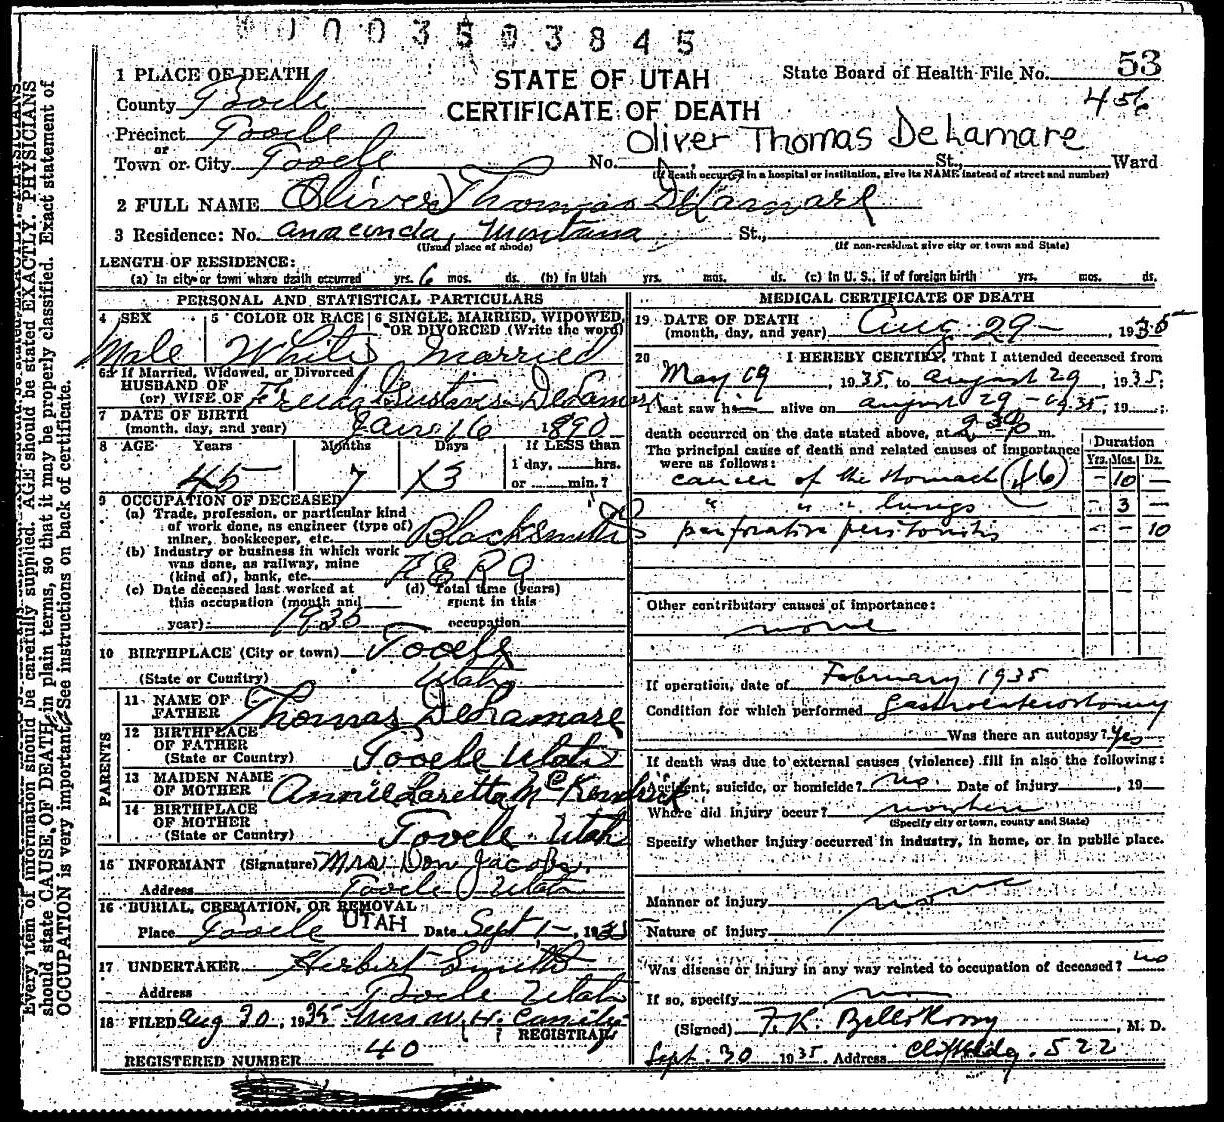 0003503845
STATE OF UTAH
CERTIFICATE OF DEATH
State Board of Health File No. 53
456
1 PLACE OF DEATH
County Tooele
Precinct Tooele
or
Town or City Tooele No. St., Ward
Oliver Thomas DeLamare
(If death occurred in a hospital or institution, give its NAME instead of street and number)
2 FULL NAME Oliver Thomas DeLamare
3 Residence: No. Anaconda, Montana St.,
(Usual place of abode) (If non-resident give city or town and State)
LENGTH OF RESIDENCE:
(a) In city or town where death occurred yrs. 6 mos. ds. (b) In Utah yrs. mos. ds. (c) In U. S., if of foreign birth yrs. mos. ds.
PERSONAL AND STATISTICAL PARTICULARS
4 SEX
Male
5 COLOR OR RACE
White
6 SINGLE, MARRIED, WIDOWED, OR DIVORCED (Write the word)
Married
6a If Married, Widowed, or Divorced
HUSBAND OF
(or) WIFE OF Freda Gustavs DeLamare
7 DATE OF BIRTH
(month, day, and year) 16 1890
8 AGE Years Months Days If LESS than
45 7 13 1 day, hrs.
or min.?
9 OCCUPATION OF DECEASED
(a) Trade, profession, or particular kind
of work done, as engineer (type of)
miner, bookkeeper, etc. Blacksmith
(b) Industry or business in which work
was done, as railway, mine
(kind of), bank, etc. F E R A
(c) Date deceased last worked at
this occupation (month and
year) 1935
(d) Total time (years)
spent in this
occupation
10 BIRTHPLACE (City or town) Tooele
(State or Country) Utah
PARENTS
11 NAME OF
FATHER Thomas DeLamare
12 BIRTHPLACE
OF FATHER
(State or Country) Tooele Utah
13 MAIDEN NAME
OF MOTHER Annie Laretta McKendrick
14 BIRTHPLACE
OF MOTHER
(State or Country) Tooele Utah
15 INFORMANT (Signature) Mrs Don Jacobs
Address Tooele Utah
16 BURIAL, CREMATION, OR REMOVAL
Place Tooele UTAH Date Sept 1-, 1935
17 UNDERTAKER Herbert Smith
Address Tooele Utah
18 FILED Aug 30, 1935
REGISTRAR
REGISTERED NUMBER 40
MEDICAL CERTIFICATE OF DEATH
19 DATE OF DEATH
(month, day, and year) Aug 29-, 1935
20 I HEREBY CERTIFY, That I attended deceased from
May 19, 1935, to August 29, 1935;
I last saw h alive on August 29-1935, 19 ;
death occurred on the date stated above, at 2 30 p m.
The principal cause of death and related causes of importance
were as follows:
Duration
Yrs. Mos. Ds.
cancer of the stomach (46) - 10 -
" " " lungs - 3 -
perforative peritonitis - - 10
Other contributory causes of importance:
none
If operation, date of February 1935
Condition for which performed gastroenterostomy
Was there an autopsy? Yes
If death was due to external causes (violence) fill in also the following:
Accident, suicide, or homicide? no Date of injury , 19
Where did injury occur? nowhere
(Specify city or town, county and State)
Specify whether injury occurred in industry, in home, or in public place.
Manner of injury
Nature of injury
Was disease or injury in any way related to occupation of deceased? no
If so, specify no
(Signed) F. K. , M. D.
Sept. 30 1935 Address Clift Bldg. 522
Every item of information should be carefully supplied. AGE should be stated EXACTLY. PHYSICIANS
should state CAUSE OF DEATH in plain terms, so that it may be properly classified. Exact statement of
OCCUPATION is very important. See instructions on back of certificate.